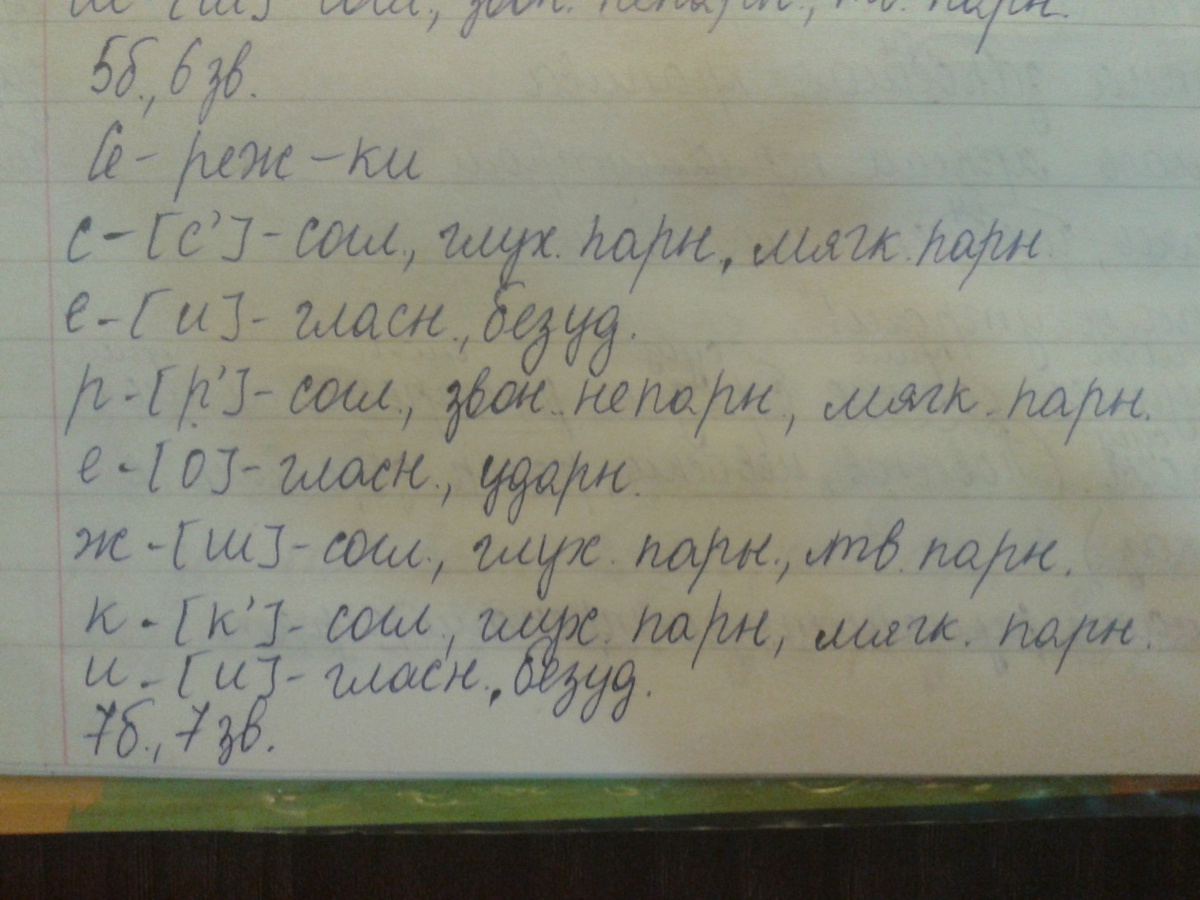 м - [м] - согл., звон. непарн., тв. парн.
5б., 6 зв.
Се - реж - ки
с - [с'] - согл., глух. парн., мягк. парн.
е - [и] - гласн., безуд.
р - [р'] - согл., звон. непарн., мягк. парн.
е - [о] - гласн., ударн.
ж - [ш] - согл., глух. парн., тв. парн.
к - [к'] - согл., глух. парн, мягк. парн.
и - [и] - гласн., безуд.
7б., 7 зв.